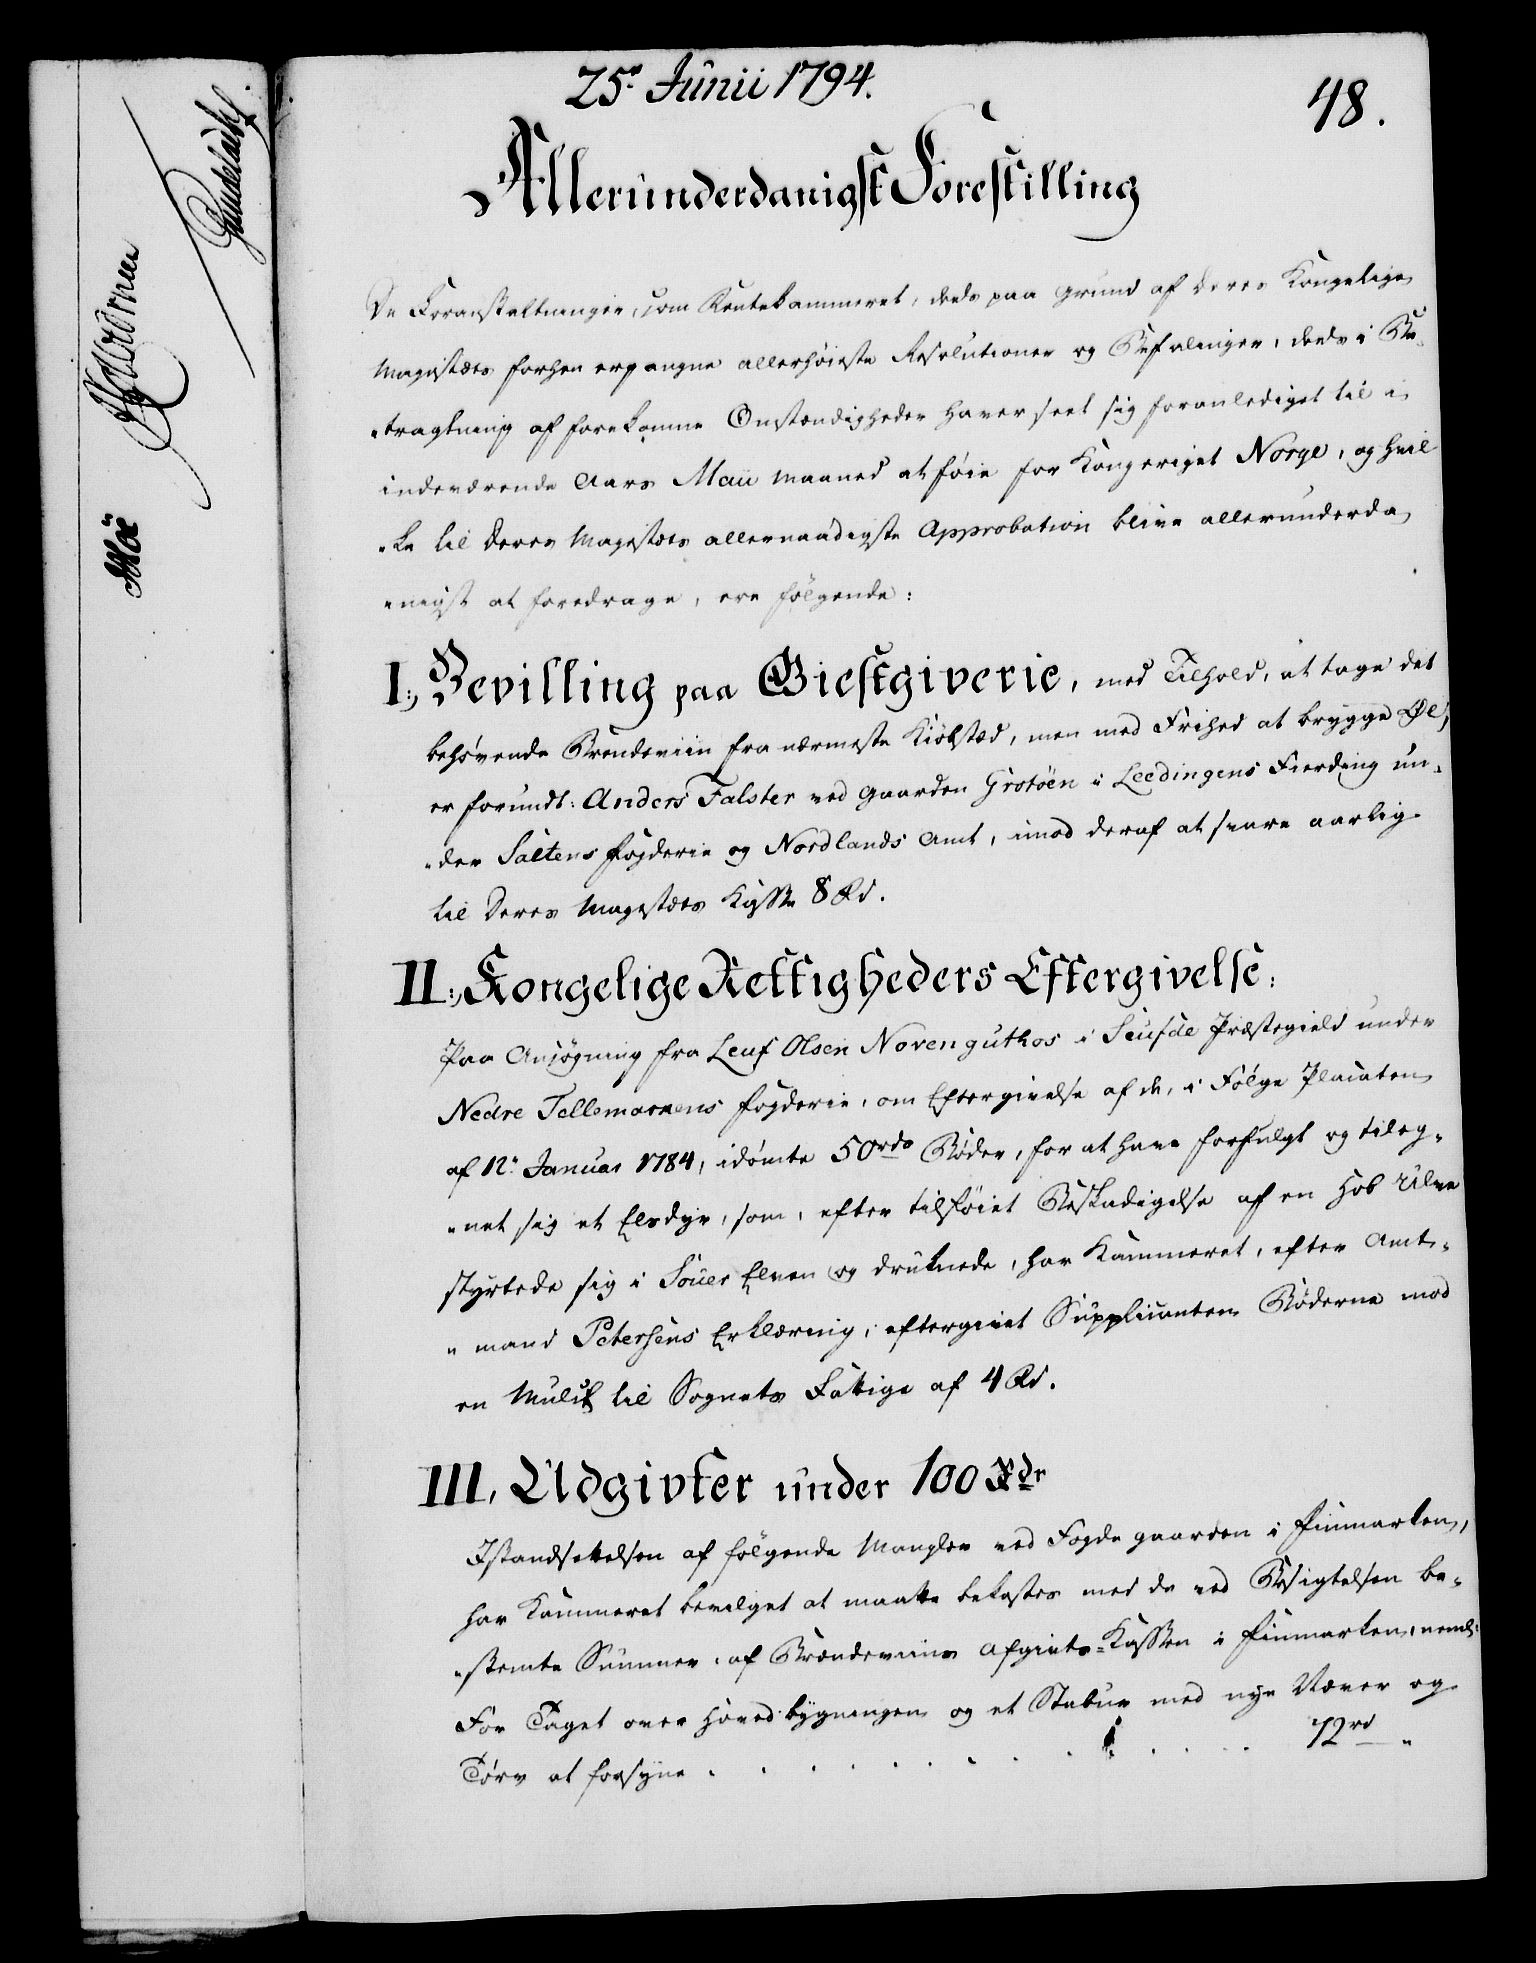 25de Junii 1794.
48.
Allerunderdanigst Forestilling
De Foranstaltninger, som Rentekammeret, deels paa Grund af Deres Kongelige
Majestæts forhen ergangne allerhøieste Resolutioner og Befalinger, deels i Be-
„tragtning af forekomne Omstændigheder haver seet sig foranlediget til i
indeværende Aars Maii Maaned at føie for Kongeriget Norge, og hvil
„ke til Deres Majestæts allernaadigste Approbation blive allerunderda
„nigst at foredrage, ere følgende:
I:, Bevilling paa Giestgiverie, med Tilhold, at tage det
behøvende Brendeviin fra nærmeste Kiøbstæd, men med Frihed at brygge Øl,
er forundt: Anders Falster ved Gaarden Grotöen i Leedingens Fierding un-
„der Saltens Fogderie og Nordlands Amt, imod deraf at svare aarlig
til Deres Majestæts Kasse 8 Rd.
II:, Kongelige Rettigheders Eftergivelse:
Paa Ansøgning fra Leuf Olsen Norenguthos i Seufde Præstegield under
Nedre Tellemarkens Fogderie, om Eftergivelse af de, i Følge Placaten
af 12te Januar 1784, idømte 50 rdr Bøder, for at have forfulgt og tileg-
„net sig et Elsdyr, som, efter tilføiet Beskadigelse af en Hob Ulve
styrtede sig i Souer Elven og druknede, har Kammeret, efter Amt-
„mand Petersens Erklæring, eftergivet Supplicanten Bøderne mod
en Mulct til Sognets Fattige af 4 Rd.
III, Udgivter under 100 Rdr
Istandsettelsen af følgende Mangler ved Fogde gaarden i Finmarken,
har Kammeret bevilget at maatte bekostes med de ved Besigtelsen be-
„stemte Summer, af Brændeviins Afgivts-Kassen i Finmarken, neml:
For Taget over Hovedbygningen og et Stabur med nye Næver og
Tørv at forsyne . . . . . . . . . . 72 rd „
Moe